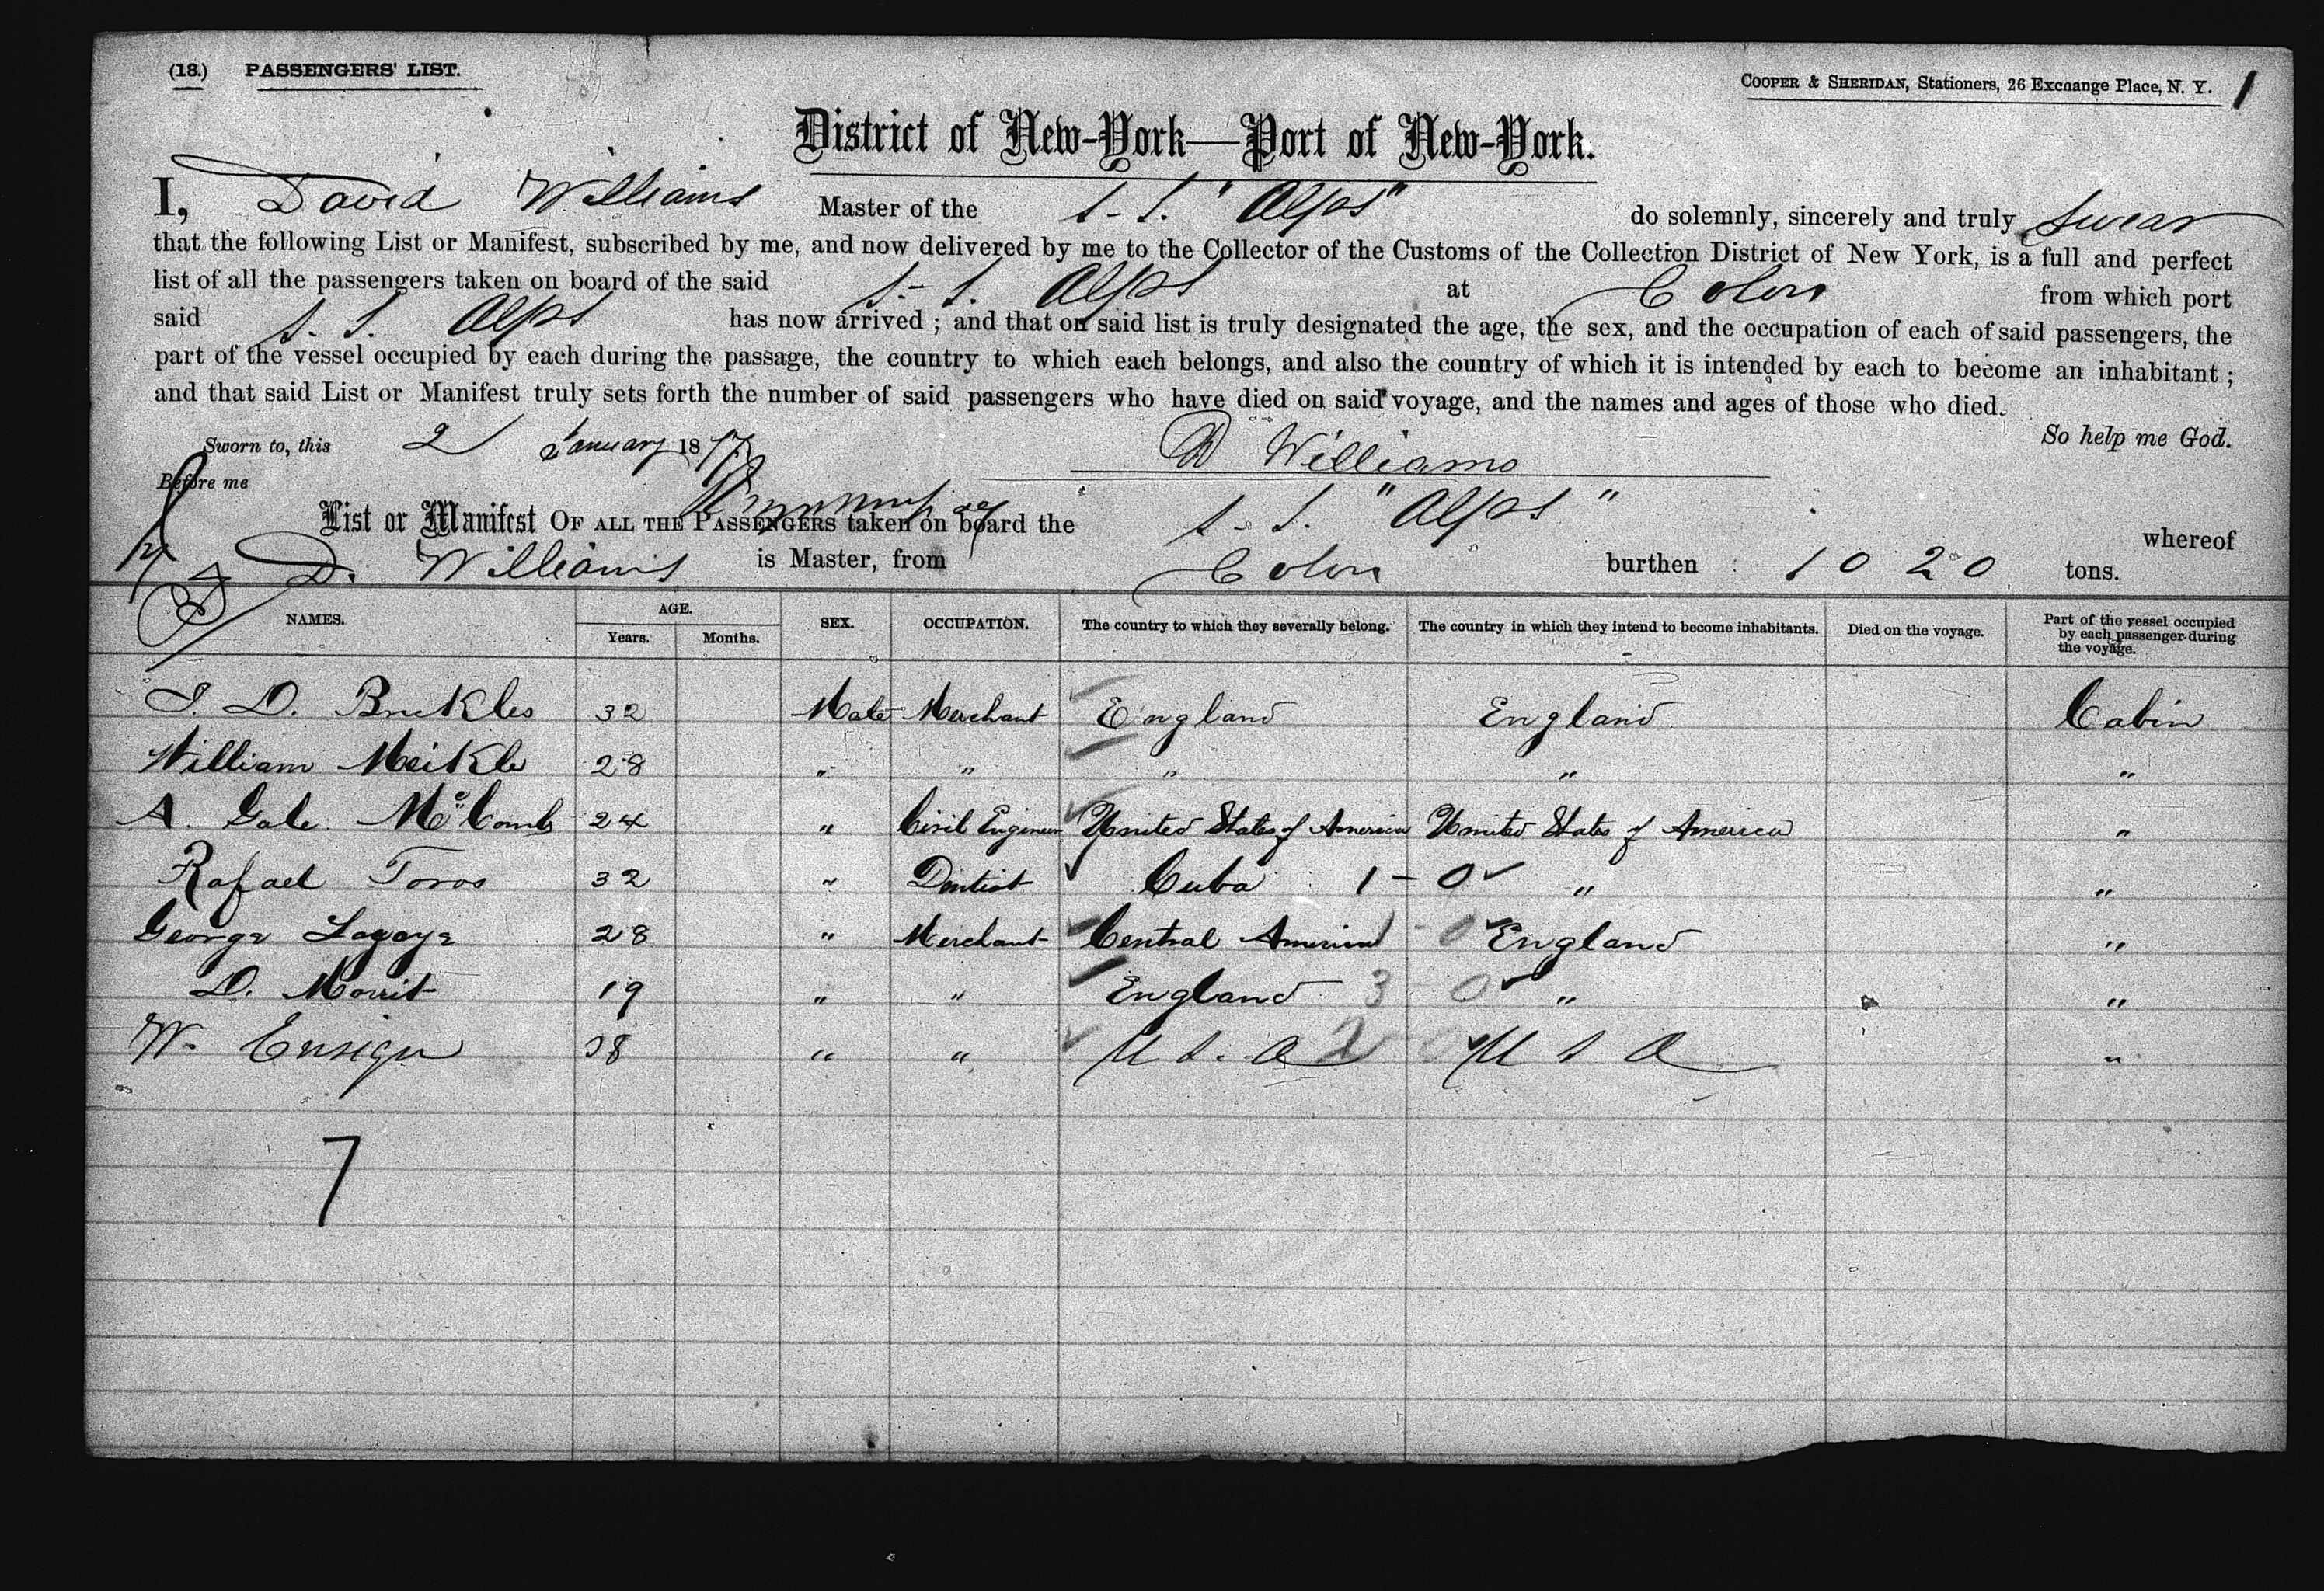 (18.) PASSENGERS' LIST.
COOPER & SHERIDAN, Stationers, 26 Exchange Place, N. Y. 1
District of New-York—Port of New-York.
I, David Williams Master of the S. S. "Alps" do solemnly, sincerely and truly swear
that the following List or Manifest, subscribed by me, and now delivered by me to the Collector of the Customs of the Collection District of New York, is a full and perfect
list of all the passengers taken on board of the said S. S. Alps at Colon from which port
said S. S. Alps has now arrived ; and that on said list is truly designated the age, the sex, and the occupation of each of said passengers, the
part of the vessel occupied by each during the passage, the country to which each belongs, and also the country of which it is intended by each to become an inhabitant ;
and that said List or Manifest truly sets forth the number of said passengers who have died on said voyage, and the names and ages of those who died.
So help me God.
Sworn to, this 2 January 1877 D Williams
Before me
List or Manifest OF ALL THE PASSENGERS taken on board the S. S. "Alps" whereof
D. Williams is Master, from Colon burthen 1020 tons.
NAMES. AGE. Years. Months. SEX. OCCUPATION. The country to which they severally belong. The country in which they intend to become inhabitants. Died on the voyage. Part of the vessel occupied by each passenger during the voyage.
D. 32 Male Merchant England England Cabin
William Meikle 28 " " " " "
A. Gale McComb 24 " Civil Engineer United States of America United States of America "
Rafael Toros 32 " Dentist Cuba 1 - 0 " "
George 28 " Merchant Central America England "
D. 19 " " England 3 0 " "
W. Ensign 38 " " U S. A 2 0 U S A "
7